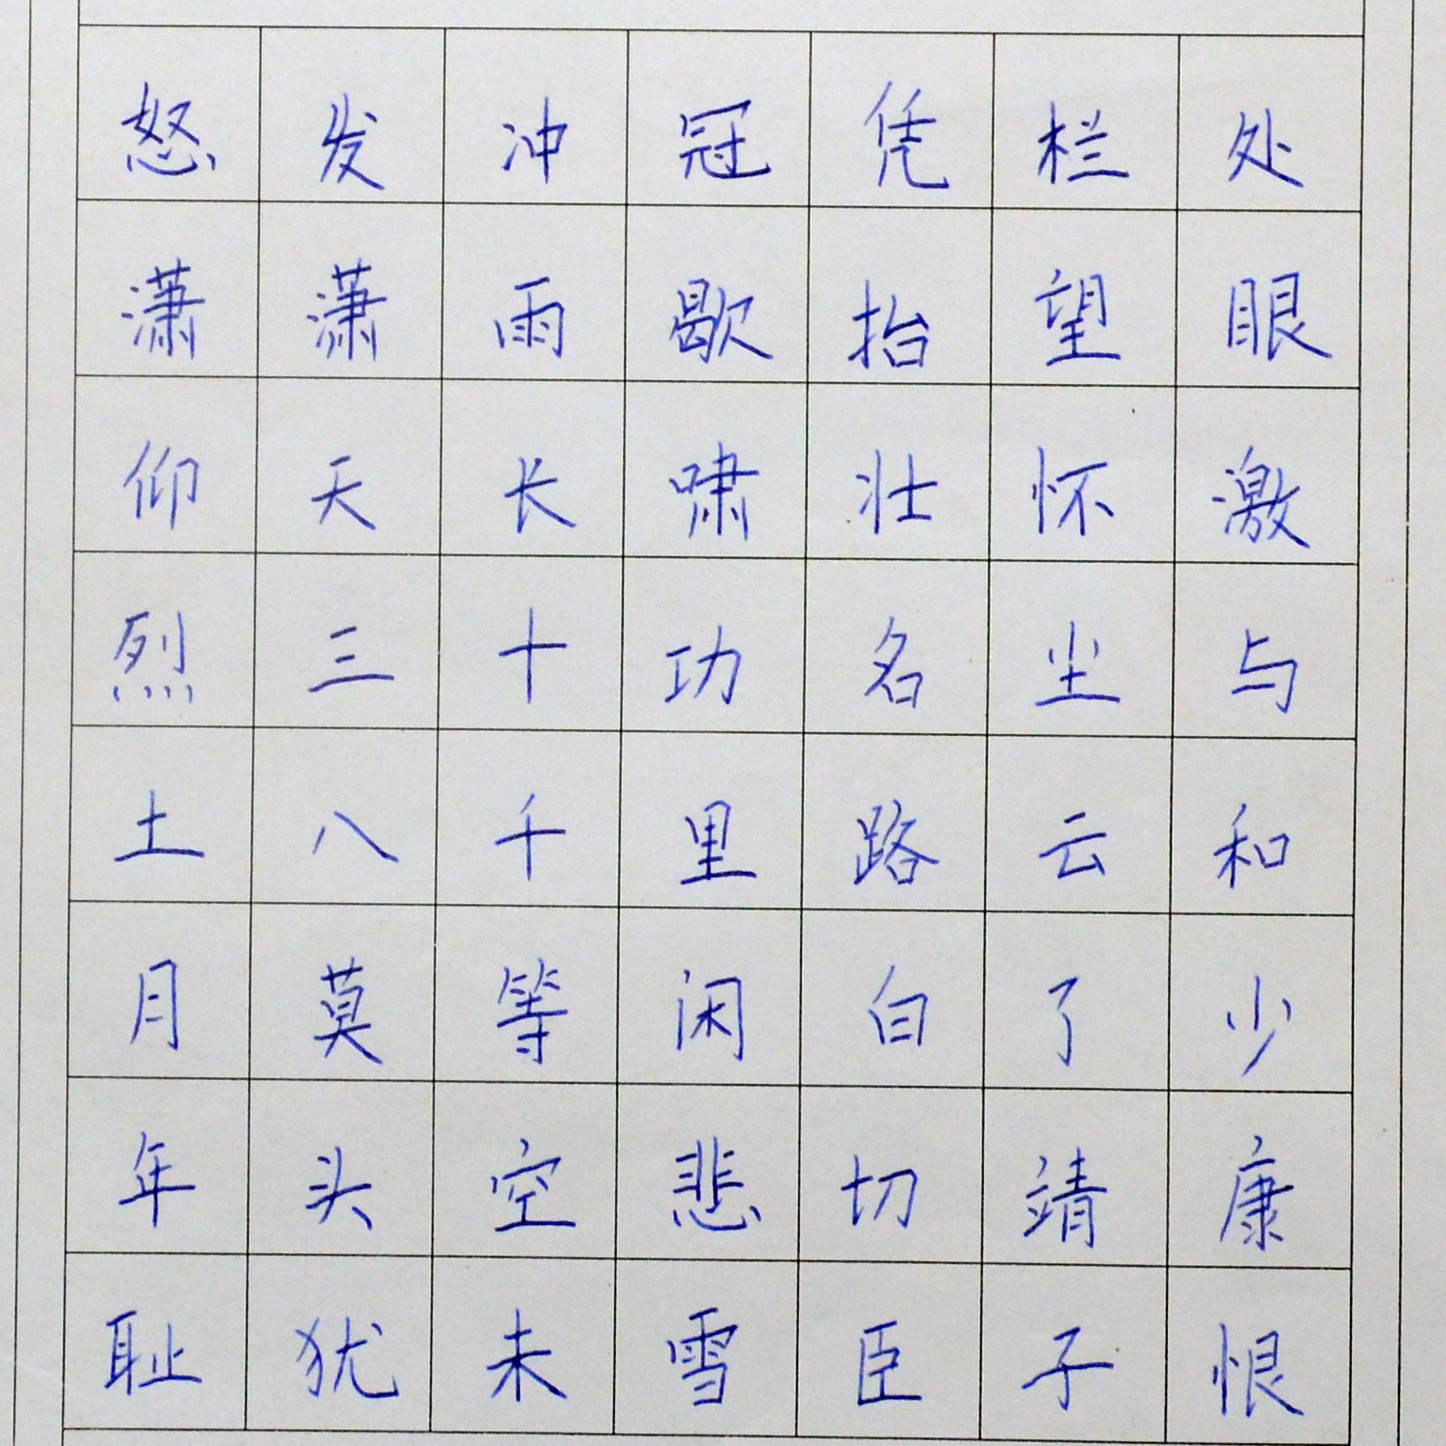 怒发冲冠凭栏处
潇潇雨歇抬望眼
仰天长啸壮怀激
烈三十功名尘与
土八千里路云和
月莫等闲白了少
年头空悲切靖康
耻犹未雪臣子恨